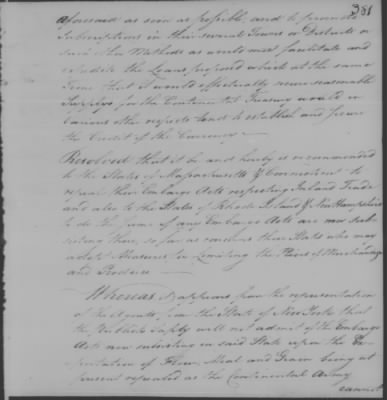 381
aforesaid as soon as possible, and to promote
Subscriptions in their several Towns or Districts or
such other Methods as would most facilitate and
expedite the Loans proposed which at the same
Time that it would effectually secure reasonable
Supplys for the Continental Treasury would in
various other respects tend to establish and secure
the Credit of the Currency
Resolved that it be and hereby is recommended
to the States of Massachusetts & Connecticut to
repeal their Embargo Acts respecting Inland Trade
and also to the States of Rhode Island & New Hampshire
to do the same if any Embargo Acts are now sub-
sisting there, so far as concerns those States who may
adopt Measures for Limiting the Prices of Merchandize
and Produce
Whereas it appears from the representation
of the Agents from the State of New York that
the Publick Safety will not admit of the Embargo
Acts now subsisting in said State upon the Ex-
portation of Flour, Meal and Grain being at
present repealed as the Continental Army
cannot